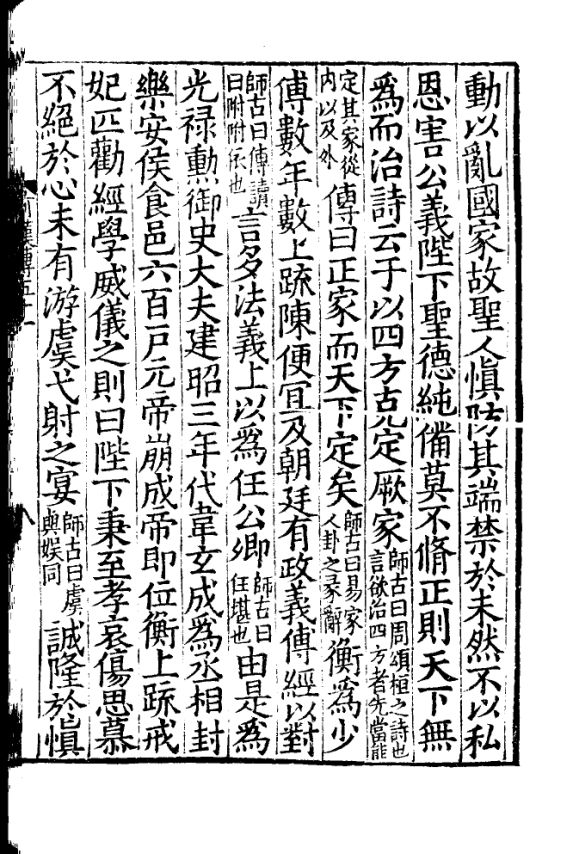 動以亂國家故聖人慎防其端禁於未然不以私
恩害公義陛下聖德純備莫不脩正則天下無
爲而治詩云于以四方克定厥家師古曰周頌桓之詩也言欲治四方者先當能
定其家從内以及外傳曰正家而天下定矣師古曰易家人卦之彖辭衡爲少
傅數年數上䟽陳便宜及朝廷有政義傅經以對
師古曰傅讀曰附附依也言多法義上以爲任公卿師古曰任堪也由是爲
光禄勲御史大夫建昭三年代韋玄成爲丞相封
樂安侯食邑六百戸元帝崩成帝即位衡上䟽戒
妃匹勸經學威儀之則曰陛下秉至孝哀傷思慕
不絕於心未有游虞弋射之宴師古曰虞與娱同誠隆於慎